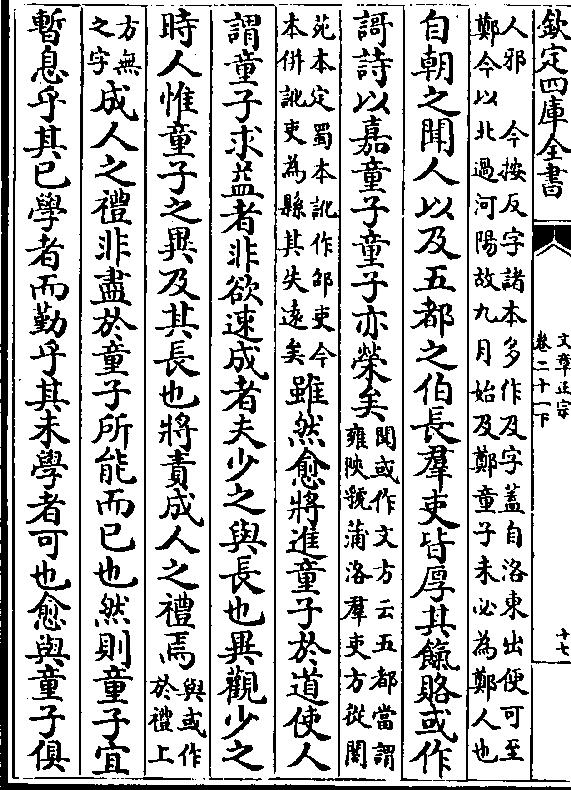 欽定四庫全書
文章正宗
卷二十一下
十七
人邪　今按反字諸本多作及字蓋自洛東出便可至
鄭今以北過河陽故九月始及鄭童子未必為鄭人也
自朝之聞人以及五都之伯長羣吏皆厚其餼賂或作
謌詩以嘉童子童子亦榮矣
聞或作文方云五都當謂
雍陜虢蒲洛羣吏方從閣
苑本定蜀本訛作郡吏今
本併訛吏為縣其失遠矣
雖然愈將進童子於道使人
謂童子求益者非欲速成者夫少之與長也異觀少之
時人惟童子之異及其長也將責成人之禮焉
與或作
於禮上
方無
之字
成人之禮非盡於童子所能而已也然則童子宜
暫息乎其已學者而勤乎其未學者可也愈與童子俱